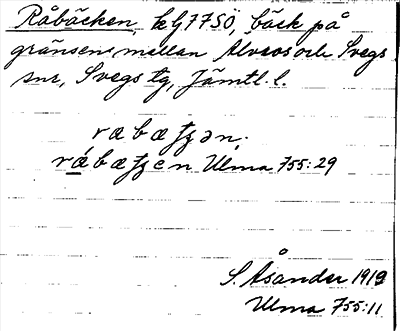 Råbäcken, kbl 77SÖ, bäck på
gränsen mellan Alvros och Svegs
snr, Svegs tg, Jämtl. l.
rabæʈʂən.
rábæʈʂen Ulma 755:29
S. Åsander 1919
Ulma 755:11